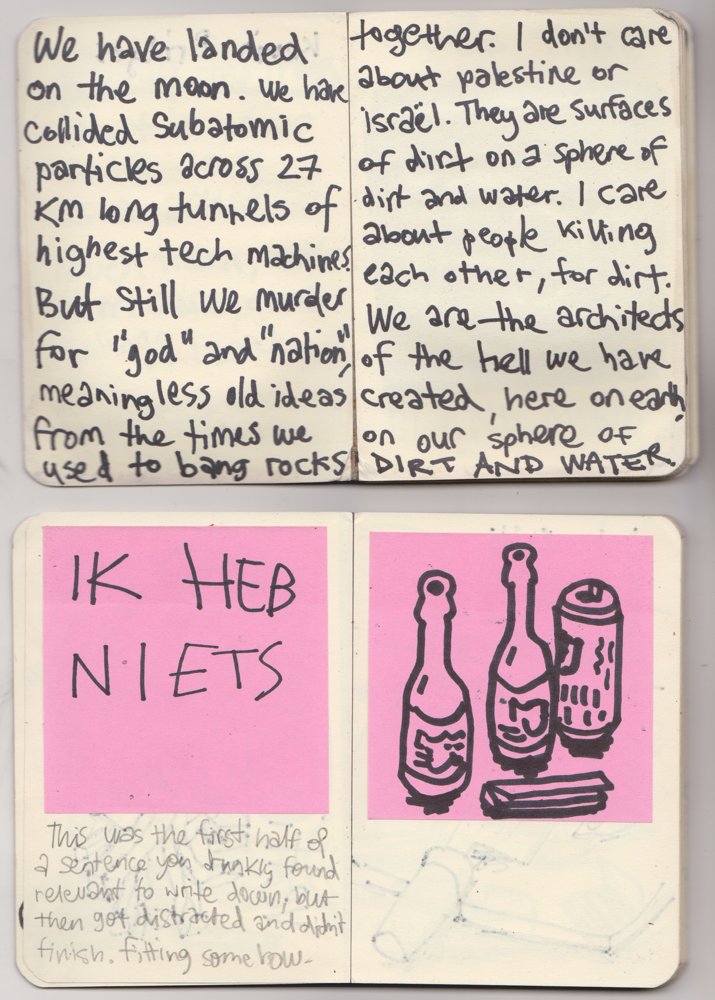 We have landed
on the moon. We have
collided subatomic
particles across 27
KM long tunnels of
highest tech machines.
But still we murder
for "god" and "nation",
meaningless old ideas
from the times we
used to bang rocks
together. I don't care
about palestine or
israël. They are surfaces
of dirt on a sphere of
dirt and water. I care
about people killing
each other, for dirt.
We are the architects
of the hell we have
created, here on earth,
on our sphere of
DIRT AND WATER.
IK HEB
NIETS
This was the first half of
a sentence you drunkly found
relevant to write down, but
then got distracted and didn't
finish. fitting somehow.